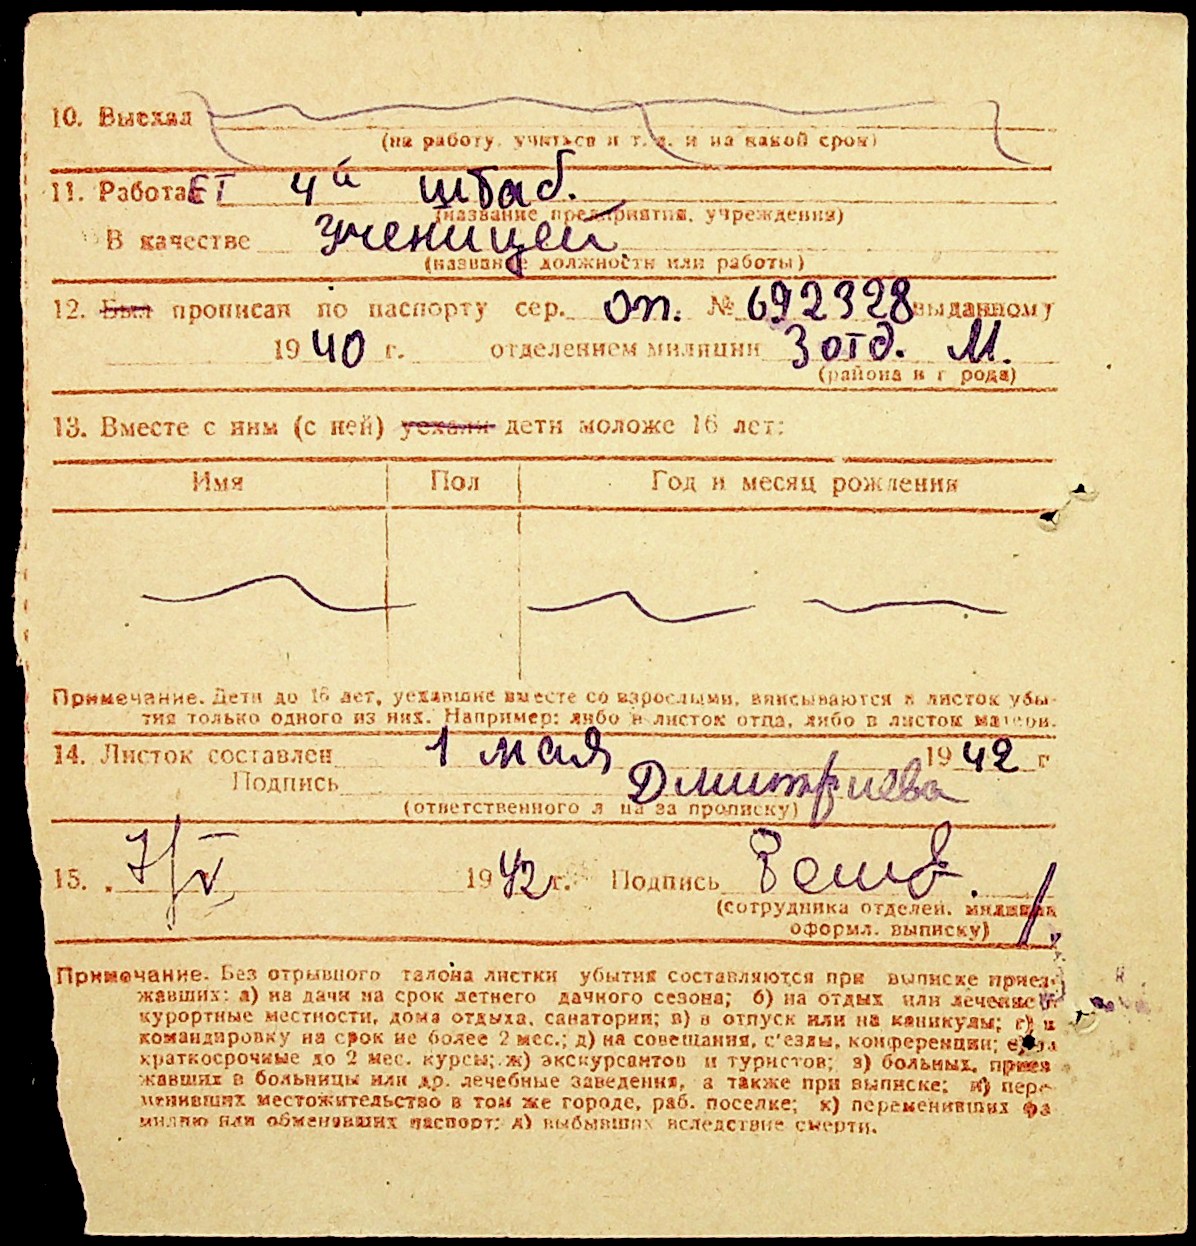 10. Выехал
(на работу, учиться и т. д. и на какой срок)
11. Работает 4й штаб.
(название предприятия, учреждения)
В качестве ученицей
(название должности или работы)
12. Был прописан по паспорту сер. оп. № 692328 выданному
1940 г. отделением милиции 3 отд. М.
(района и города)
13. Вместе с ним (с ней) уехали дети моложе 16 лет:
Имя Пол Год и месяц рождения
Примечание. Дети до 16 лет, уехавшие вместе со взрослыми, вписываются в листок убы-
тия только одного из них. Например: либо в листок отца, либо в листок матери.
14. Листок составлен 1 мая 1942 г
Подпись Дмитриева
(ответственного лица за прописку)
15. 7/V 1942 г. Подпись
(сотрудника отделен. милиции
оформл. выписку)
Примечание. Без отрывного талона листки убытия составляются при выписке приез-
жавших: а) на дачи на срок летнего дачного сезона; б) на отдых или лечение в
курортные местности, дома отдыха, санатории; в) в отпуск или на каникулы; г) в
командировку на срок не более 2 мес.; д) на совещания, с'езды, конференции; е) на
краткосрочные до 2 мес. курсы; ж) экскурсантов и туристов; з) больных, приез
жавших в больницы или др. лечебные заведения, а также при выписке; и) пере-
менивших местожительство в том же городе, раб. поселке; к) переменивших фа
милию или обменявших паспорт; л) выбывших вследствие смерти.